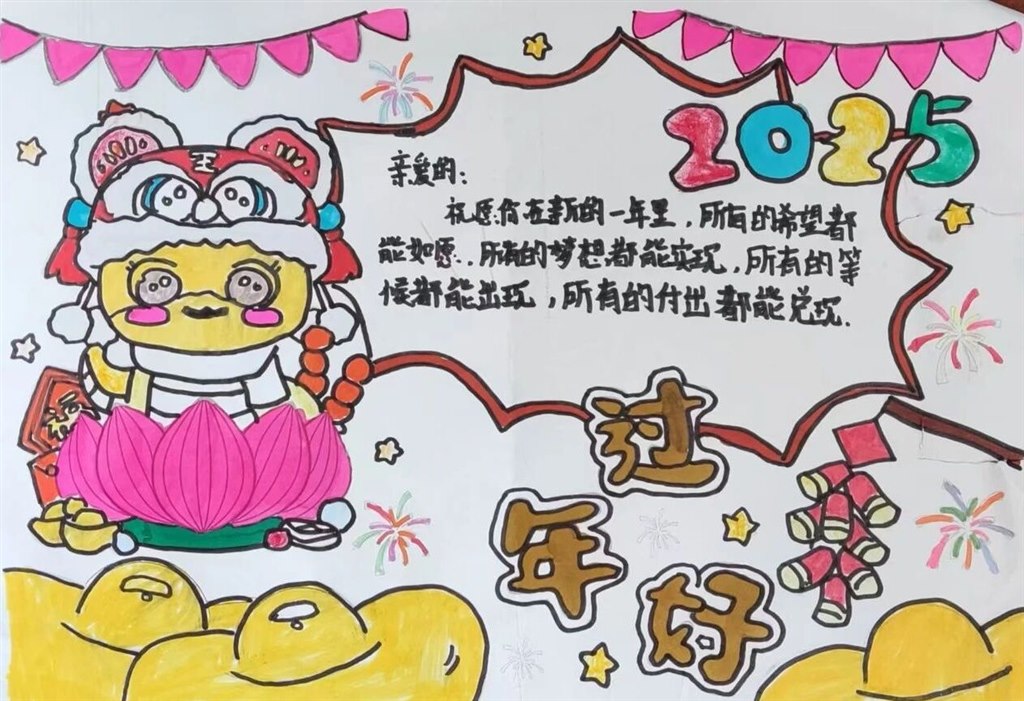 王
2025
亲爱的：
祝愿你在新的一年里，所有的希望都
能如愿，所有的梦想都能实现，所有的等
候都能出现，所有的付出都能兑现.
过
年
好